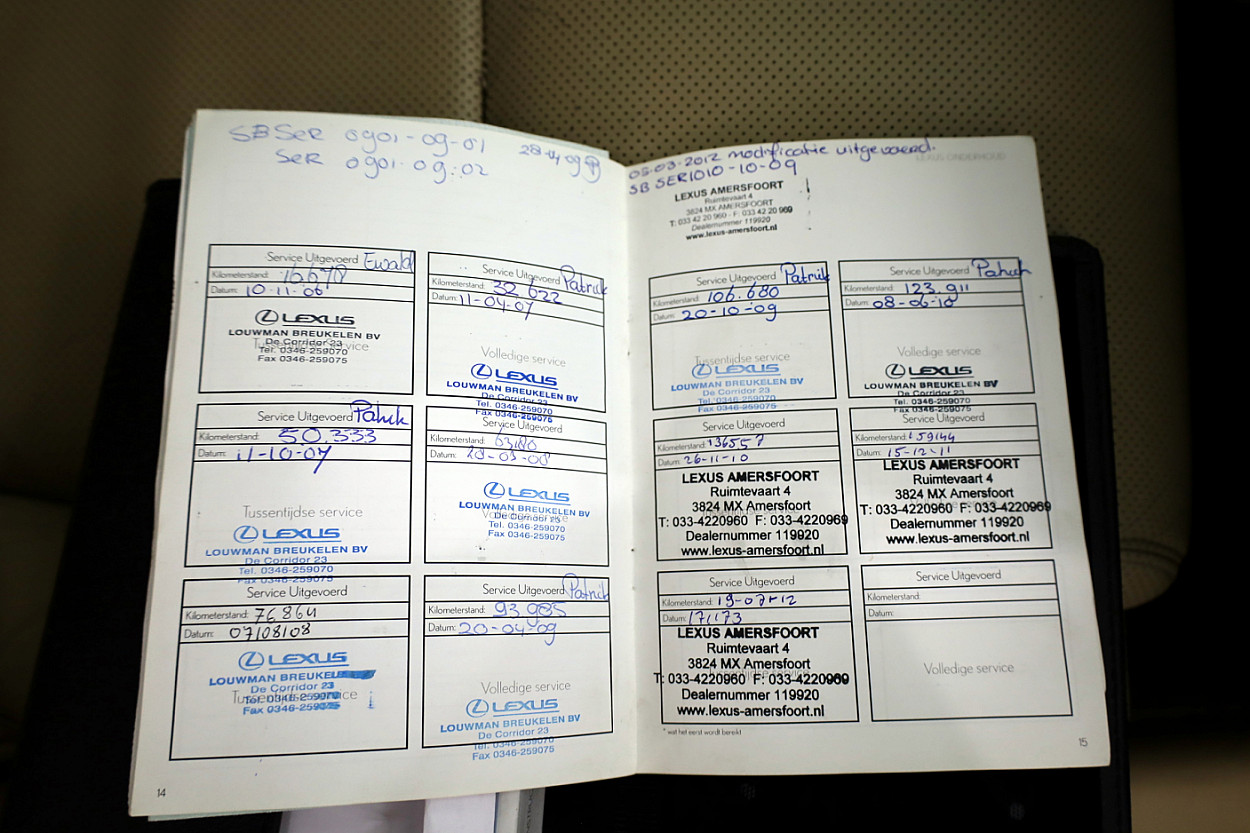 SBSER 0901-09-01
SER 0901-09-02
28-04-09
Service Uitgevoerd Ewald
Kilometerstand: 16.678
Datum: 10-11-06
LEXUS
LOUWMAN BREUKELEN BV
De Corridor 23
Tel. 0346-259070
Fax 0346-259075
Service Uitgevoerd Patrick
Kilometerstand: 32 622
Datum: 11-04-07
Volledige service
LEXUS
LOUWMAN BREUKELEN BV
De Corridor 23
Tel. 0346-259070
Fax 0346-259075
Service Uitgevoerd Patrick
Kilometerstand: 50.333
Datum: 11-10-07
Tussentijdse service
LEXUS
LOUWMAN BREUKELEN BV
De Corridor 23
Tel. 0346-259070
Fax 0346-259075
Service Uitgevoerd
Kilometerstand:
Datum:
LEXUS
LOUWMAN BREUKELEN BV
De Corridor 23
Tel. 0346-259070
Fax 0346-259075
Service Uitgevoerd
Kilometerstand: 76864
Datum: 07/08/08
LEXUS
LOUWMAN BREUKELEN
De Corridor 23
Tel. 0346-259070
Fax 0346-259075
Tussentijdse service
Service Uitgevoerd Patrick
Kilometerstand: 93.985
Datum: 20-04-09
Volledige service
LEXUS
LOUWMAN BREUKELEN BV
De Corridor 23
Tel. 0346-259070
Fax 0346-259075
14
LEXUS ONDERHOUD
05-03-2012 modificatie uitgevoerd.
SB SER1010-10-09
LEXUS AMERSFOORT
Ruimtevaart 4
3824 MX AMERSFOORT
T: 033 42 20 960 - F: 033 42 20 969
Dealernummer 119920
www.lexus-amersfoort.nl
Service Uitgevoerd Patrick
Kilometerstand: 106.680
Datum: 20-10-09
Tussentijdse service
LEXUS
LOUWMAN BREUKELEN BV
De Corridor 23
Tel. 0346-259070
Fax 0346-259075
Service Uitgevoerd Patrick
Kilometerstand: 123.911
Datum: 08-06-10
Volledige service
LEXUS
LOUWMAN BREUKELEN BV
De Corridor 23
Tel. 0346-259070
Fax 0346-259075
Service Uitgevoerd
Kilometerstand: 136557
Datum: 26-11-10
LEXUS AMERSFOORT
Ruimtevaart 4
3824 MX Amersfoort
T: 033-4220960 F: 033-4220969
Dealernummer 119920
www.lexus-amersfoort.nl
Service Uitgevoerd
Kilometerstand: 159144
Datum: 15-12-11
LEXUS AMERSFOORT
Ruimtevaart 4
3824 MX Amersfoort
T: 033-4220960 F: 033-4220969
Dealernummer 119920
www.lexus-amersfoort.nl
Service Uitgevoerd
Kilometerstand: 19-07-12
Datum: 171173
LEXUS AMERSFOORT
Ruimtevaart 4
3824 MX Amersfoort
T: 033-4220960 F: 033-4220969
Dealernummer 119920
www.lexus-amersfoort.nl
Service Uitgevoerd
Kilometerstand:
Datum:
Volledige service
* wat het eerst wordt bereikt
15